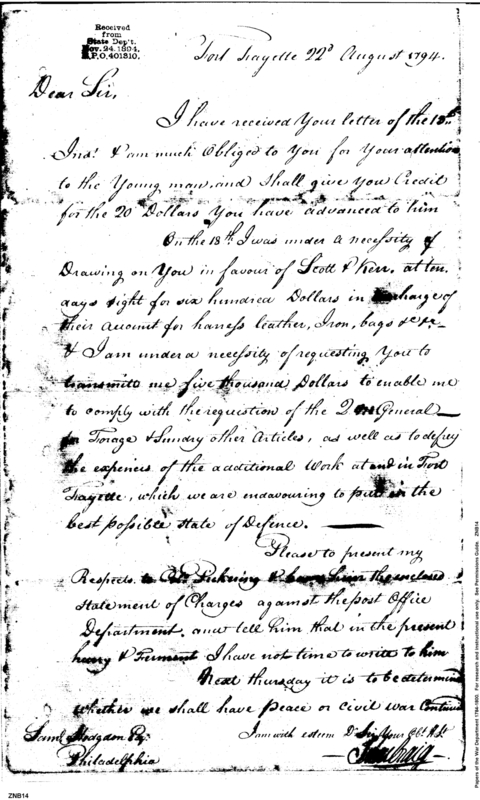 Received
from
State Dep't.
Nov. 24. 1894.
R.P.O. 401310.
Fort Fayette 22d August 1794.
Dear Sir,
I have received Your letter of the 13th
Inst. & am much Obliged to You for Your attention
to the Young man, and shall give You Credit
for the 20 Dollars You have advanced to him
On the 18th I was under a necessity of
Drawing on You in favour of Scott & Kerr, at ten
days sight for six hundred Dollars in discharge of
their account for harness leather, Iron, bags &c &c
& I am under a necessity of requesting You to
transmite me five thousand Dollars to enable me
to comply with the requestion of the Q M General
for Forage & Sundry other Articles, as well as to defray
the expences of the additional Work at and in Fort
Fayette, which we are endavouring to put in the
best possible state of Defence.
Please to present my
Respects to Col. Pickering & him the enclosed
statement of Charges against the post Office
Department, and tell him that in the present
hurry & Ferment I have not time to write to him
Next thursday it is to be determined
whether we shall have peace or civil war Continued
I am with esteem Dr Sir Your Obt. H. St.
Saml Hodgdon Esq.
Philadelphia
Isaac Craig
ZNB14
Papers of the War Department 1784-1800. For research and instructional use only. See Permissions Guide. ZNB14